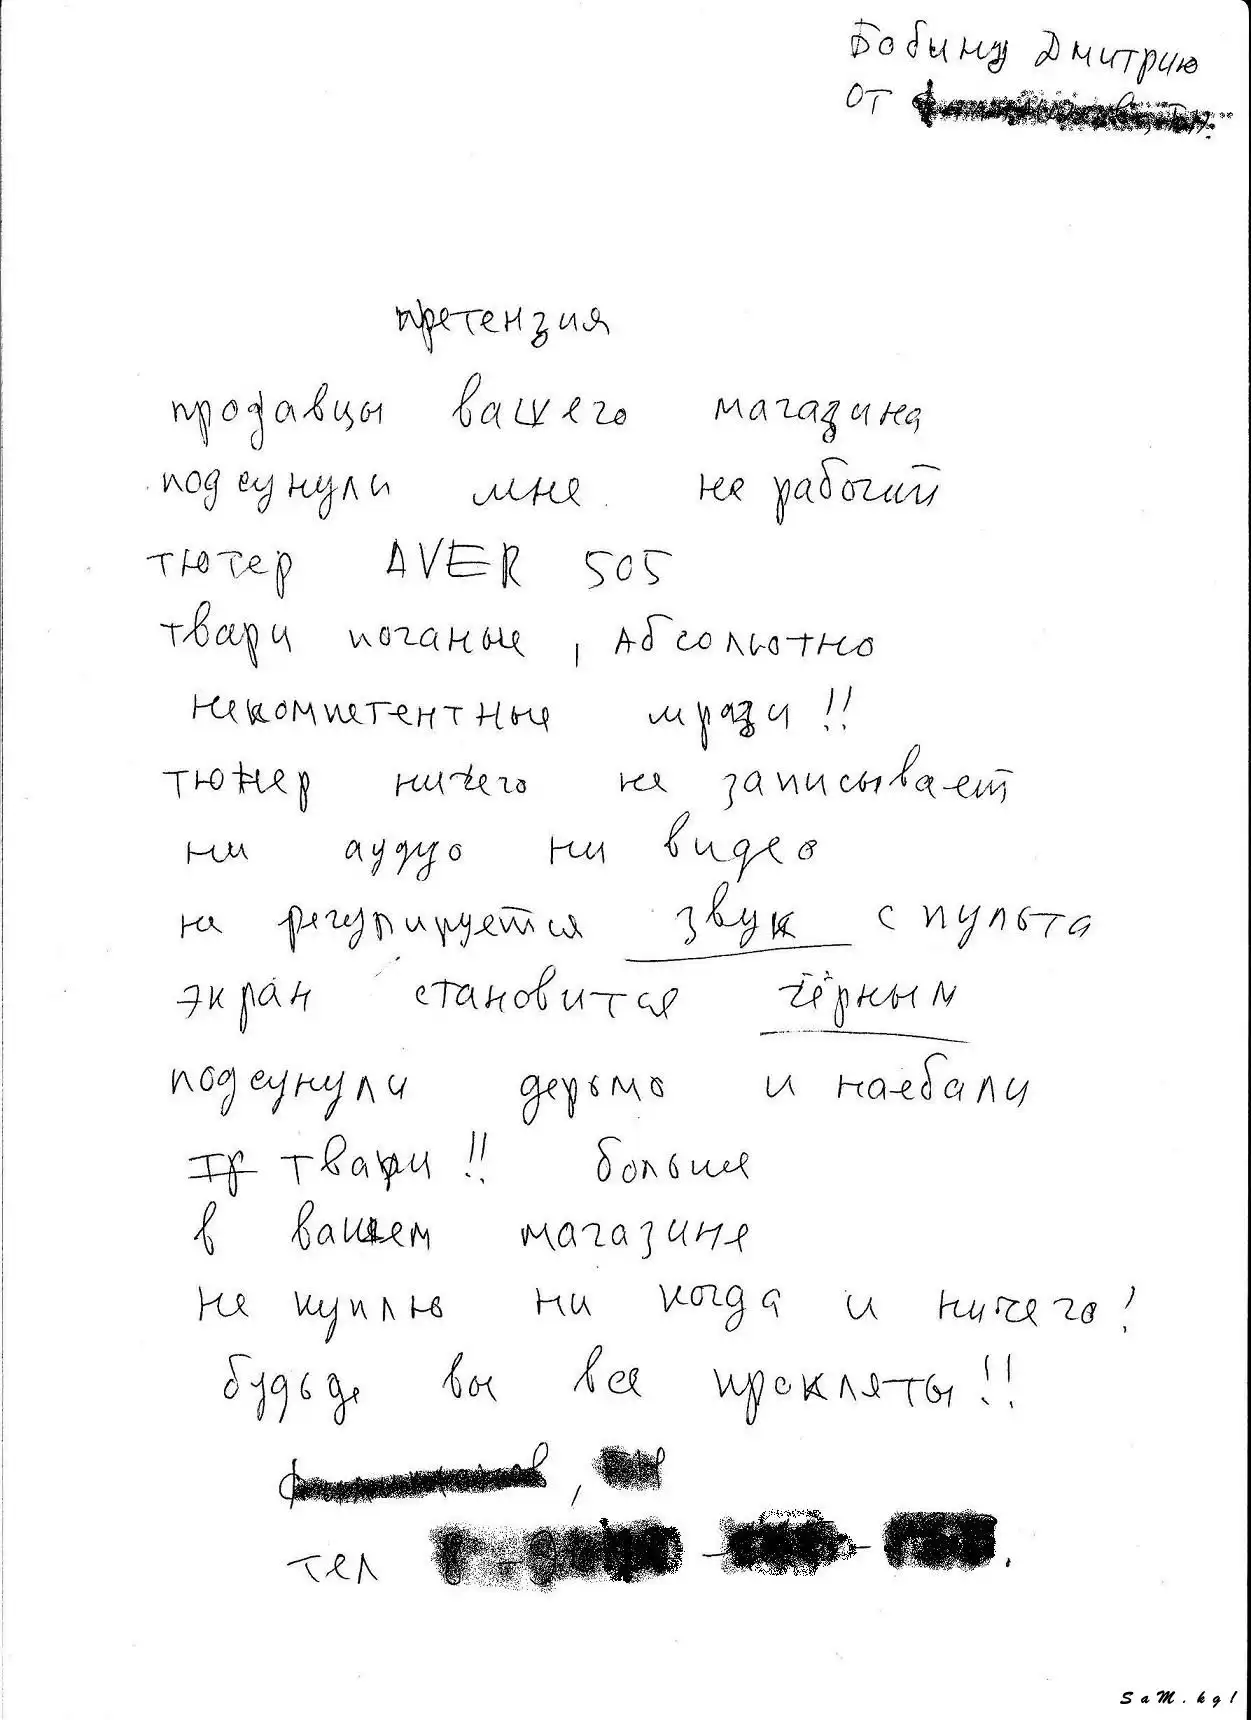 Бобину Дмитрию
от
претензия
продавцы вашего магазина
подсунули мне не рабочий
тютер AVER 505
твари поганые, Абсольютно
некомпетентные мрази!!
тюнер ничего не записывает
ни аудуо ни видео
не регулируется звук с пульта
экран становится чёрным
подсунули дерьмо и наебали
тр твари!! больше
в вашем магазине
не куплю ни когда и ничего!
будьде вы все прокляты!!
тел
SaM.kgl